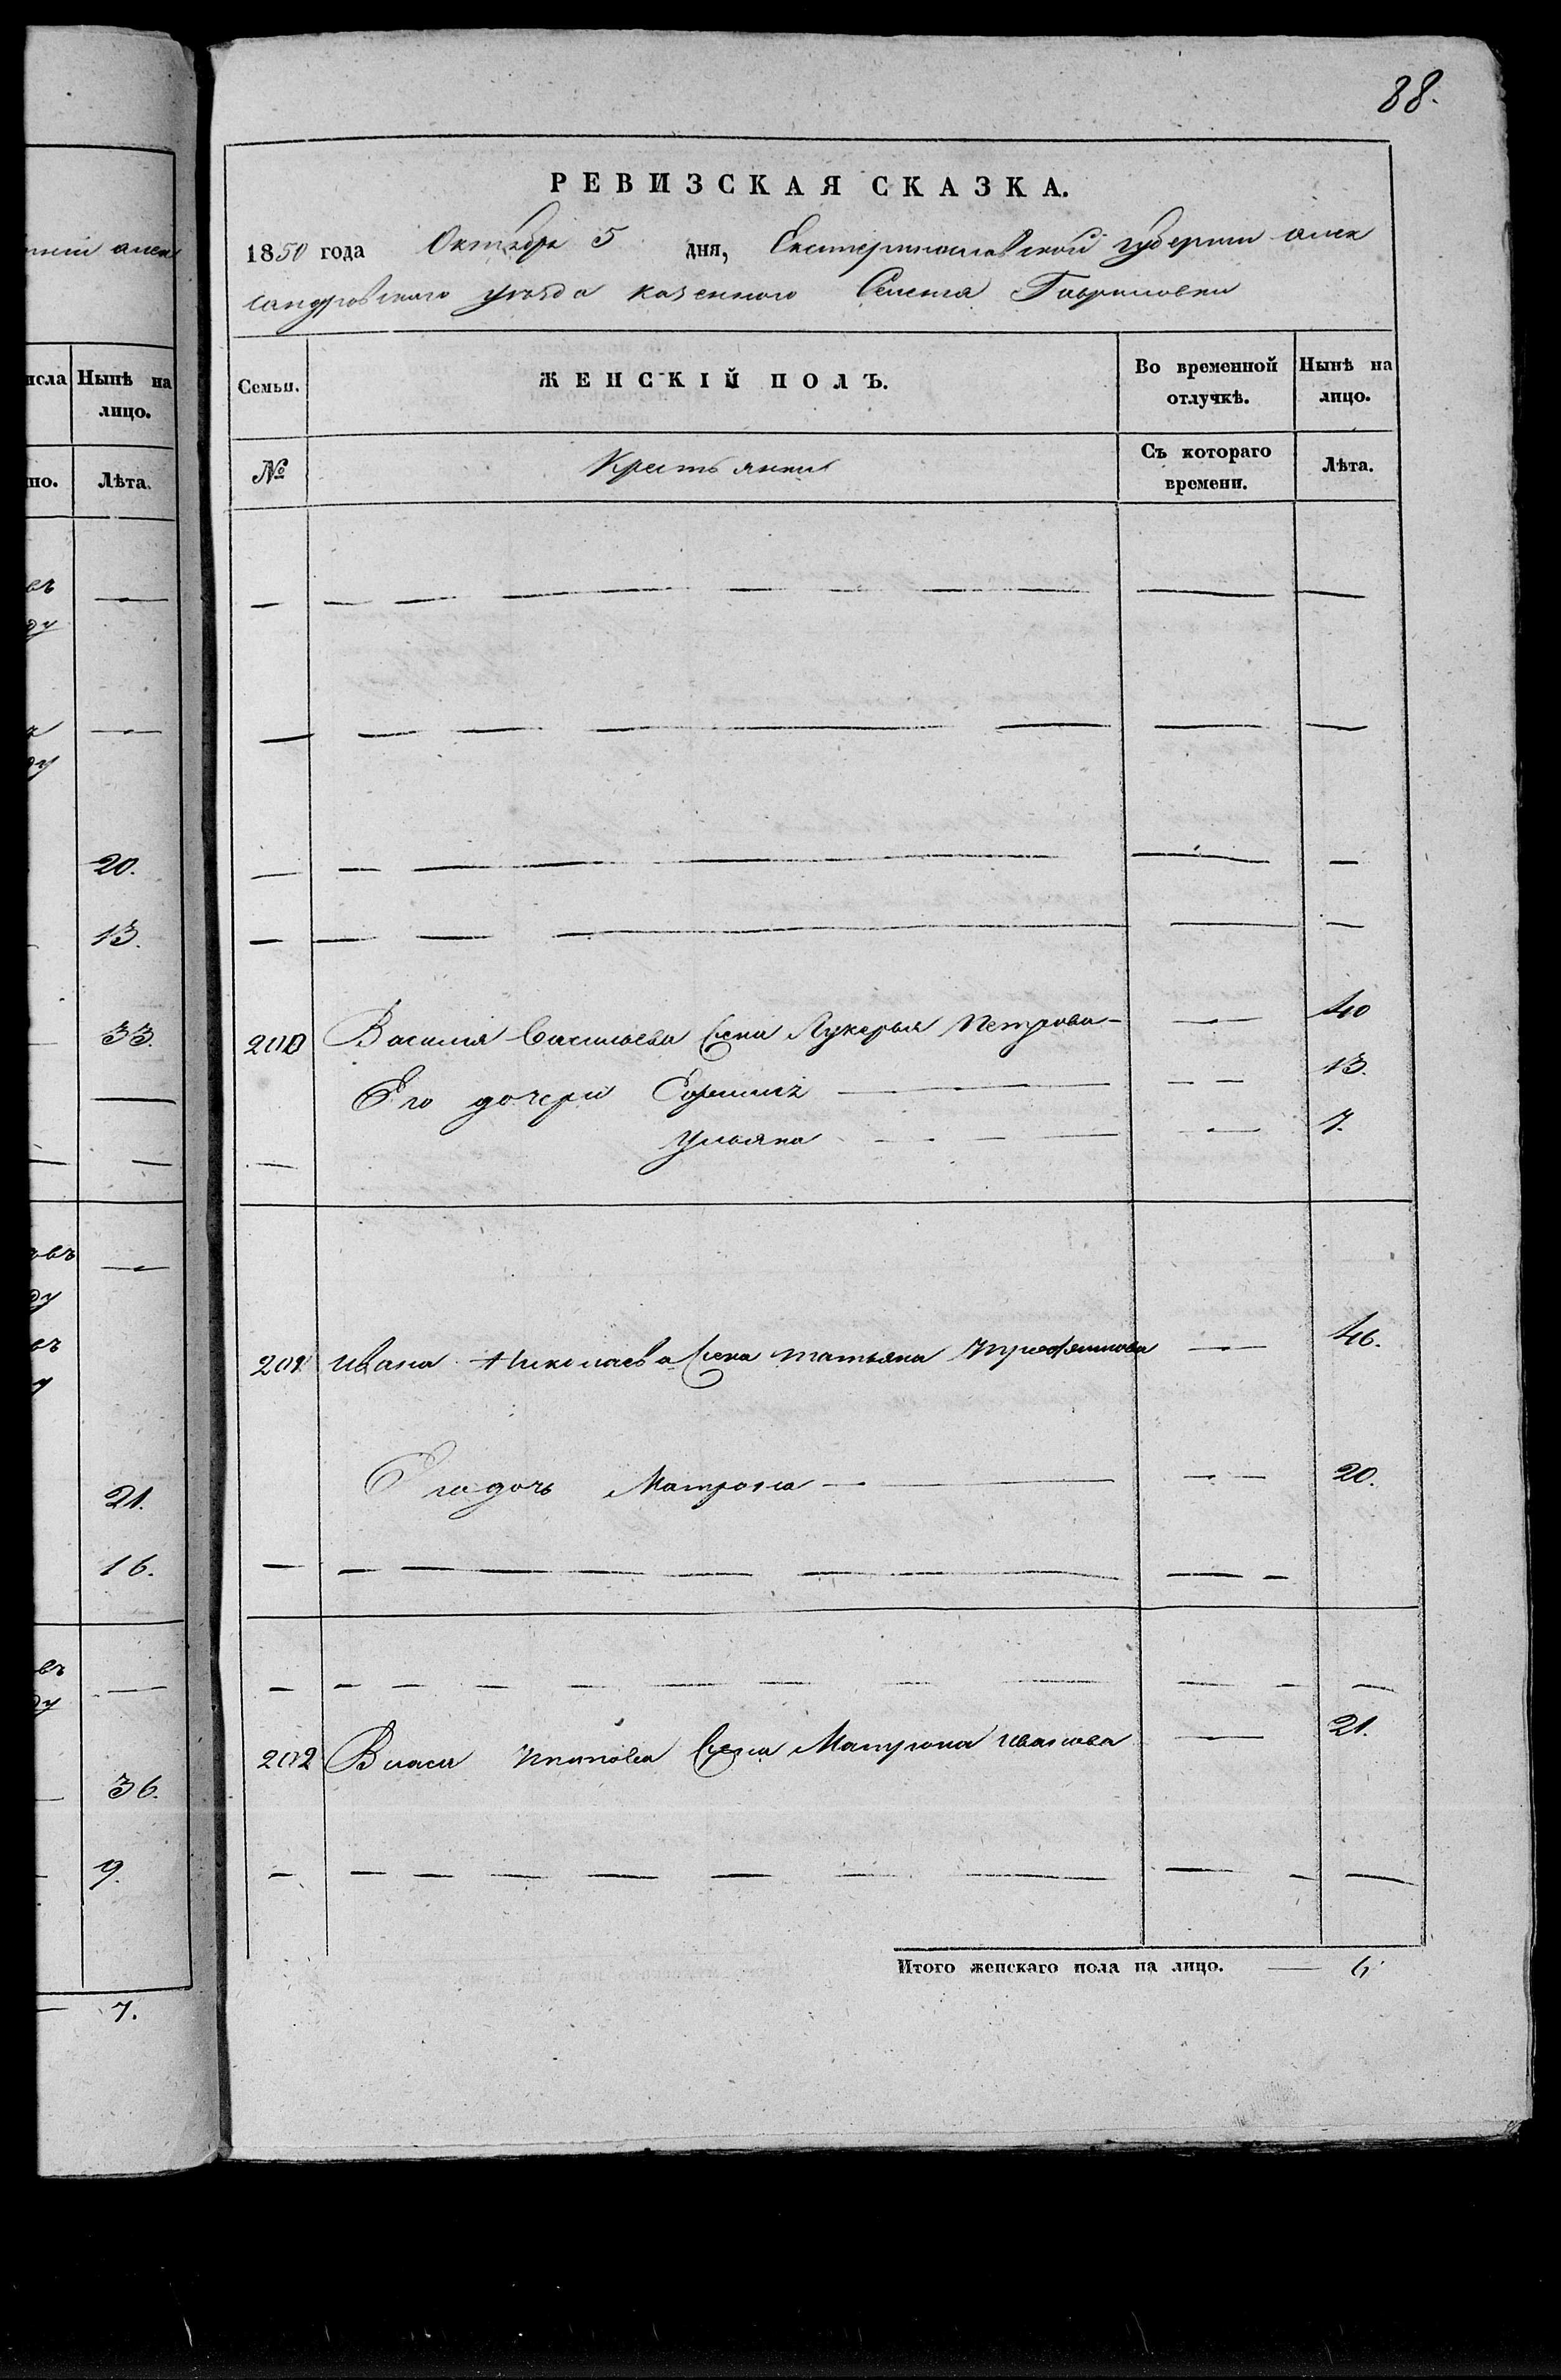 нiи алек
исла Нынѣ на
лицо.
но. Лѣта.
въ
ду
ду
20.
13.
33.
въ
ду
въ
у
21.
16.
въ
ду
36.
9.
7.
88.
РЕВИЗСКАЯ СКАЗКА.
1850 года Октября 5 дня, Екатеринославской губернии алек
сандровского уезда казенного Селения Гавриловки
Семьи. ЖЕНСКІЙ ПОЛЪ. Во временной отлучкѣ. Нынѣ на лицо.
№ Крестьянки Съ котораго времени. Лѣта.
200 Василия Васильева жена Лукерья Петрова 40
Его дочери 13.
Ульяна 7.
201 Ивана Николаева жена татьяна трофимова 46.
Его дочь Матрона 20.
202 Власа жена Матрона иванова 21.
Итого женскаго пола на лицо. 6